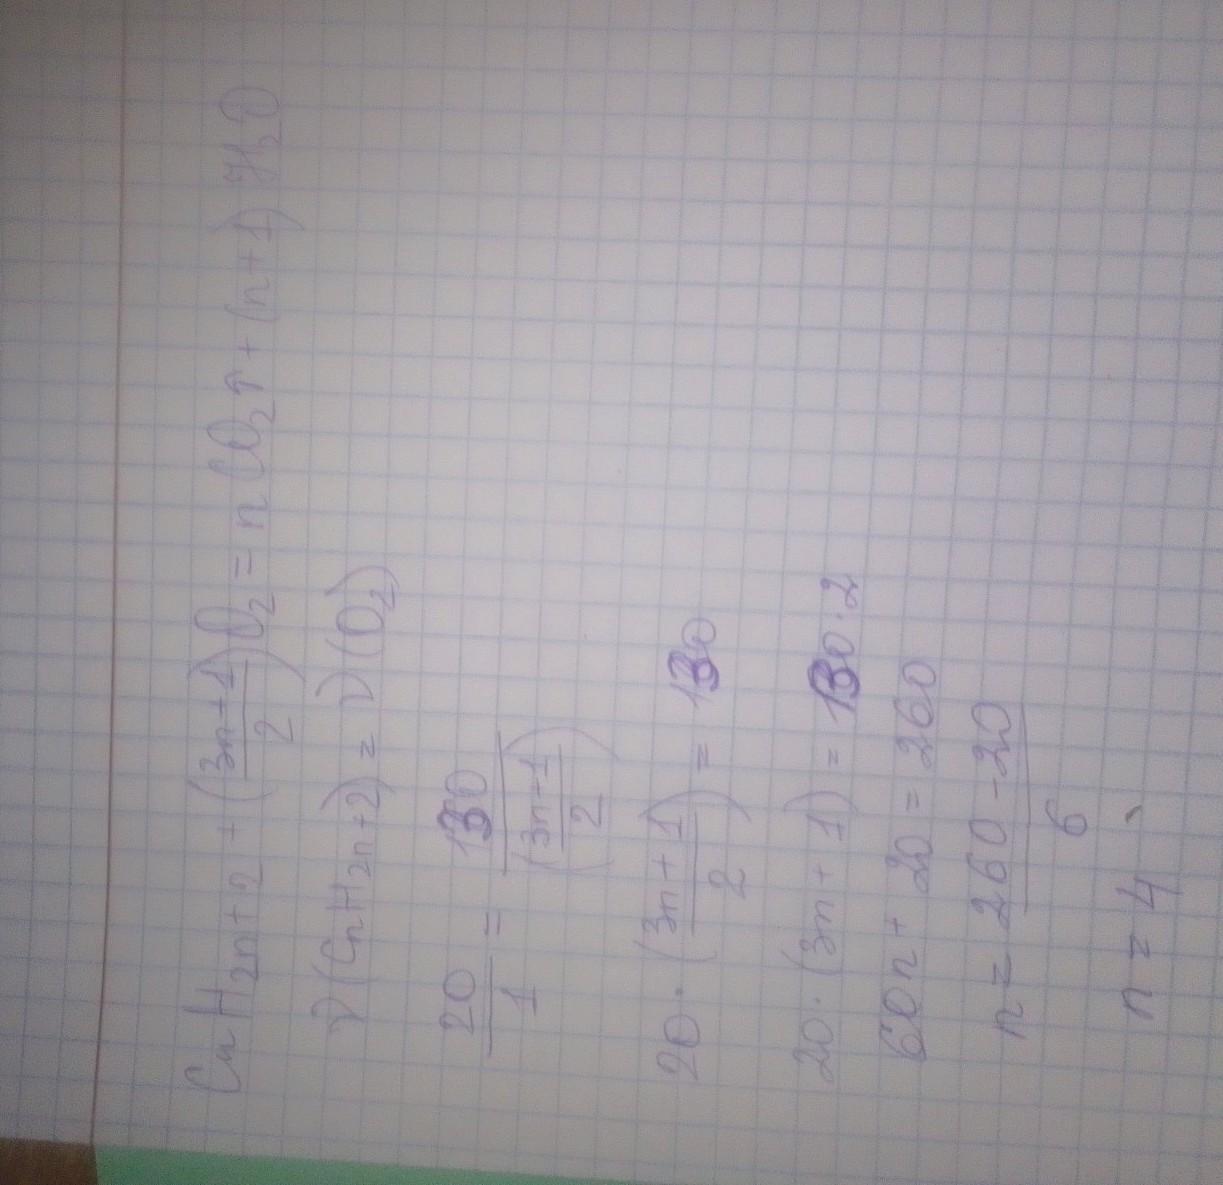 CnH2n+2 + (3n+1/2)O2 = nCO2↑ + (n+1) H2O
ν(CnH2n+2) = ν(O2)
20/1 = 130/(3n-1/2)
20 · (3n+1/2) = 130
20 · (3n+1) = 130 · 2
60n + 20 = 260
n = 260-20/6
n = 4